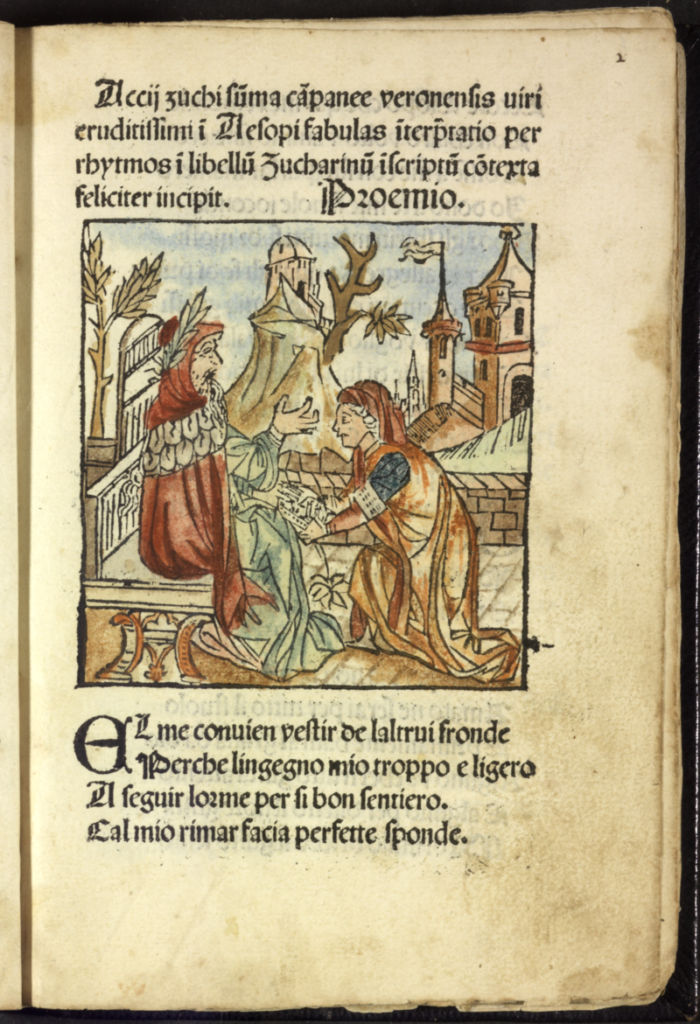 2
Accij zuchi sūma cāpanee veronensis uiri
eruditissimi ī Aesopi fabulas īterp̄tatio per
rhytmos ī libellū Zucharinū īscriptū cōtexta
feliciter incipit. Proemio.
EL me conuien vestir de laltrui fronde
Perche lingegno mio troppo e ligero
A seguir lorme per si bon sentiero.
Cal mio rimar facia perfette sponde.